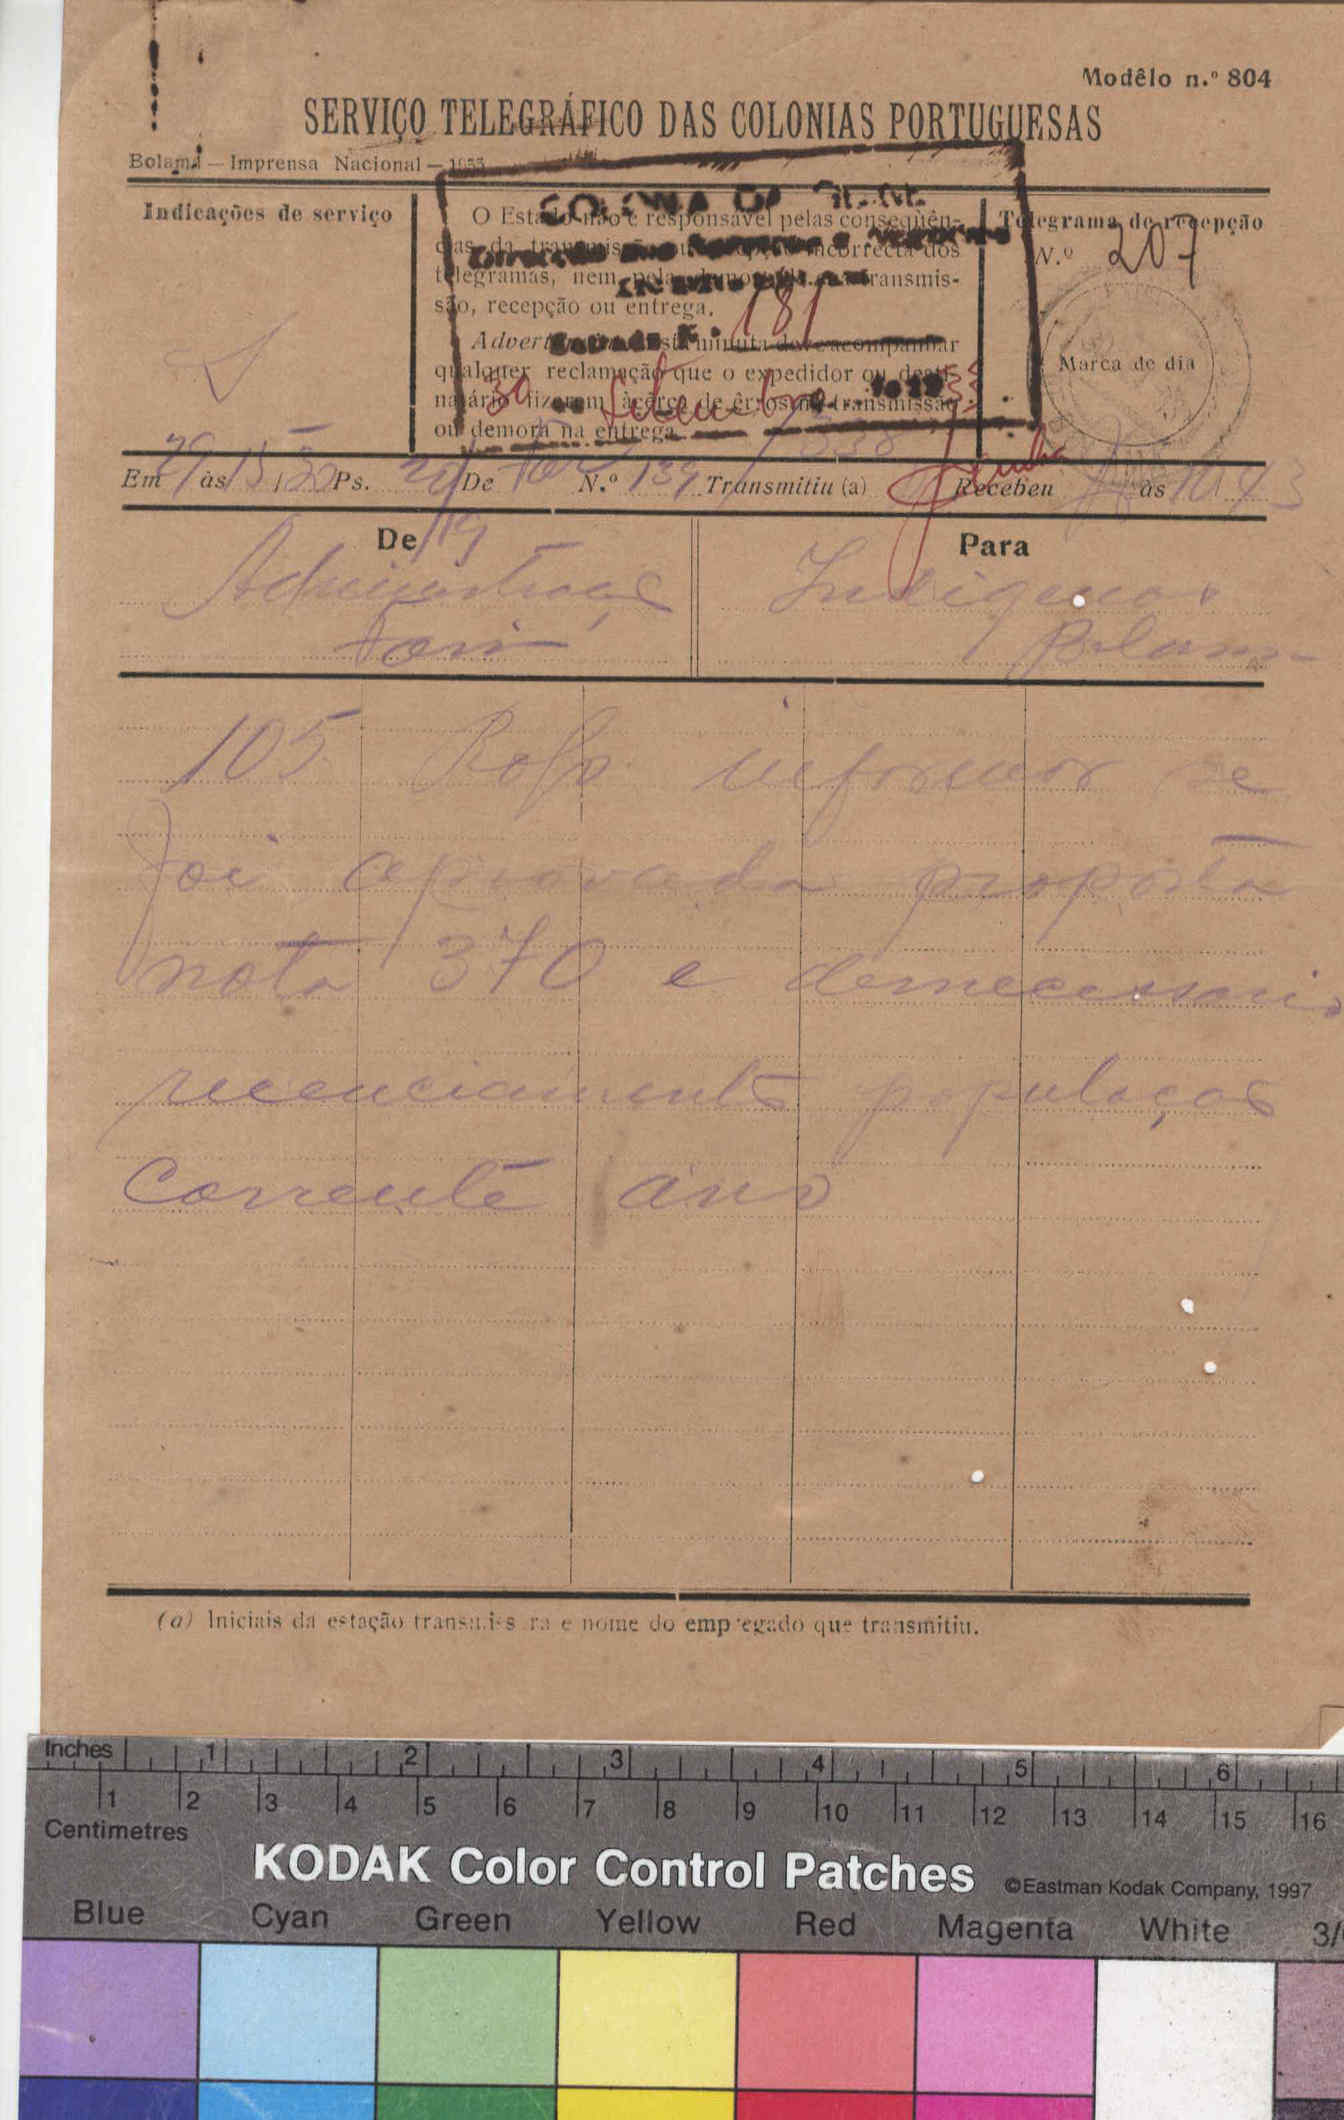 Modêlo n.º 804
SERVIÇO TELEGRÁFICO DAS COLONIAS PORTUGUESAS
Bolama — Imprensa Nacional — 1933
Indicações de serviço
O Estado não é responsável pelas conseqüên-
cias da transmissão ou recepção incorrecta dos
telegramas, nem pela demora na transmis-
são, recepção ou entrega.
Advertência: Esta minuta deve acompanhar
qualquer reclamação que o expedidor ou desti-
natário fizerem àcêrca de êrros na transmissão
ou demora na entrega.
COLONIA DA GUINÉ
181
30 Setembro
Telegrama de recepção
N.º 207
Marca de dia
Em 29 às 15,50 Ps. 20/19 De N.º 139 Transmitiu (a) Recebeu às
De
Para
Administração
Indigenas
Bolama
105 Rogo informar se
foi aprovada proposta
nota 370 e desnecessario
recenciamento populaçao
corrente ano
(a) Iniciais da estação transmissora e nome do empregado que transmitiu.
Inches 1 2 3 4 5 6
1 2 3 4 5 6 7 8 9 10 11 12 13 14 15 16
Centimetres
KODAK Color Control Patches ©Eastman Kodak Company, 1997
Blue Cyan Green Yellow Red Magenta White 3/